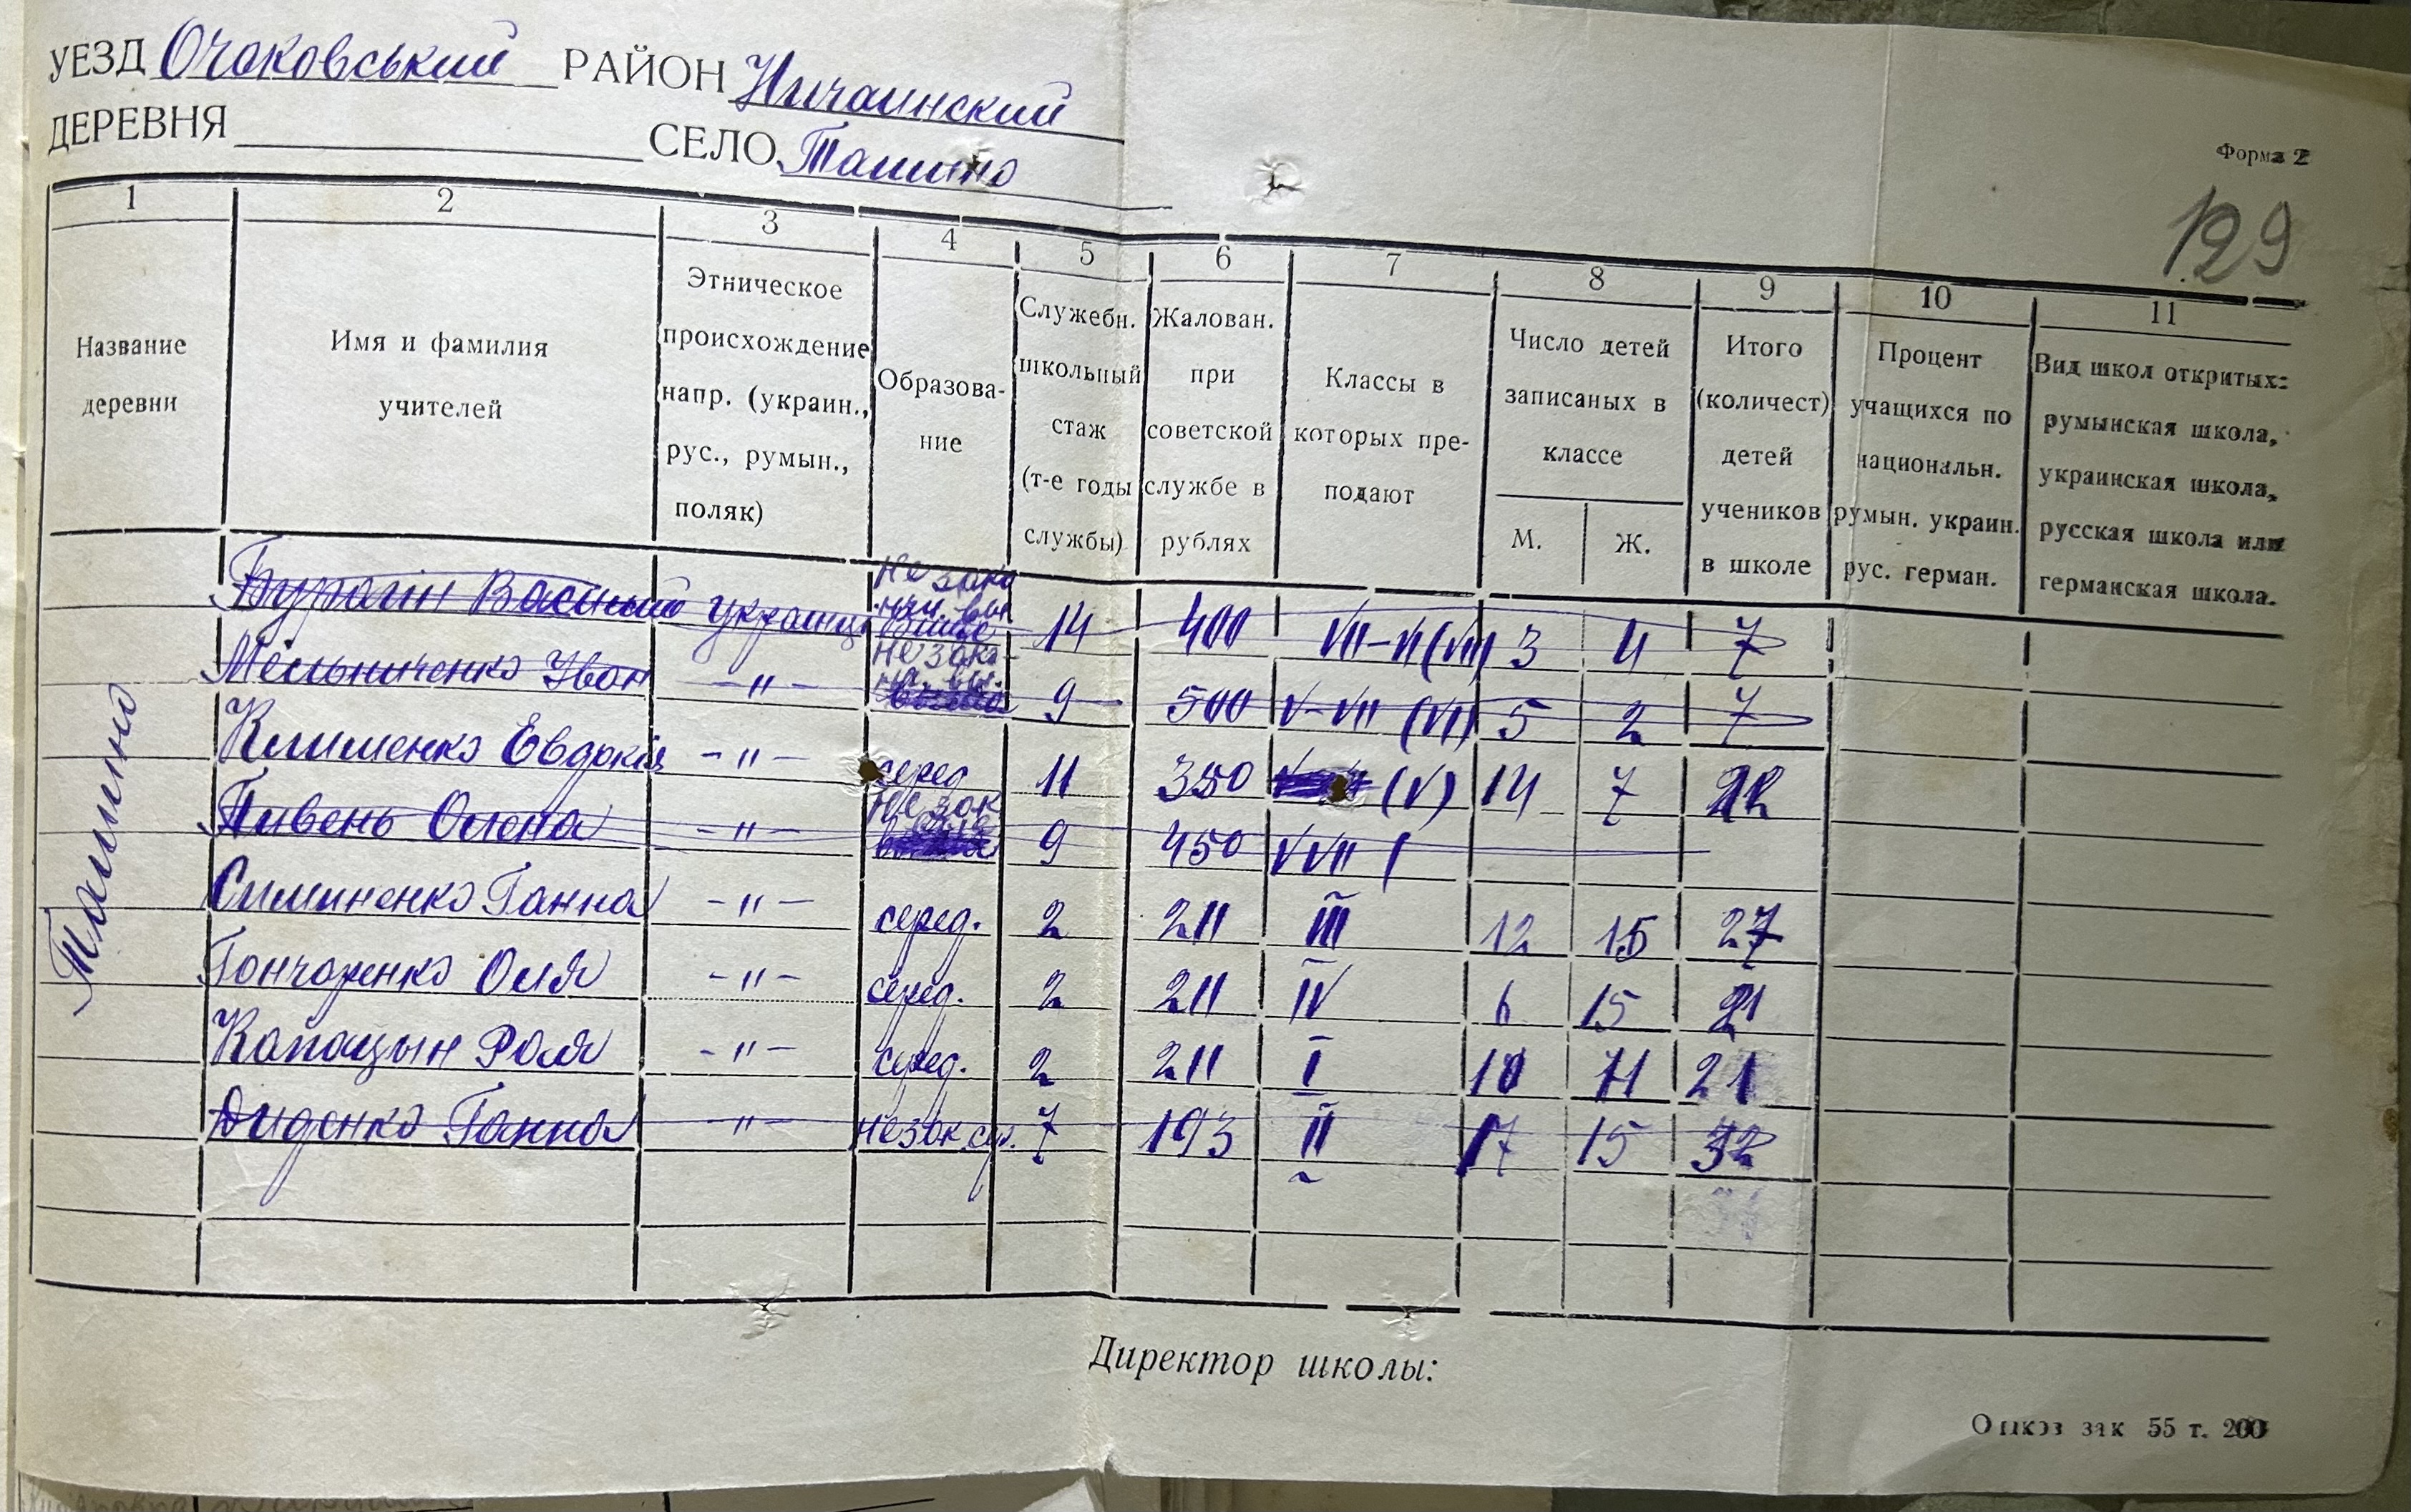 УЕЗД Очаковський РАЙОН Ничаинский
ДЕРЕВНЯ СЕЛО Ташино
Форма 2
129
1 2 3 4 5 6 7 8 9 10 11
Название деревни
Имя и фамилия учителей
Этническое происхождение напр. (украин., рус., румын., поляк)
Образова-ние
Служебн. школьный стаж (т-е годы службы)
Жалован. при советской службе в рублях
Классы в которых пре-подают
Число детей записаных в классе
М. Ж.
Итого (количест) детей учеников в школе
Процент учащихся по национальн. румын. украин. рус. герман.
Вид школ откритых: румынская школа, украинская школа, русская школа или германская школа.
Ташино
Василий украинц Не зако 14 400 VII-VI (VII) 3 4 7
Мельниченко Иван -"- Не зако- 9 500 V-VII (VI) 5 2 7
Клименко Евдокія -"- серед 11 350 (V) 14 7 22
Пивень Олена -"- Не зок 9 450 V VII
Симиненко Ганна -"- серед. 2 211 III 12 15 27
Гончаренко Оля -"- серед. 2 211 IV 6 15 21
Капацын Роля -"- серед. 2 211 I 10 11 21
Диденко Ганна -"- незок. 7 193 II 17 15 32
Директор школы:
зак 55 т. 200